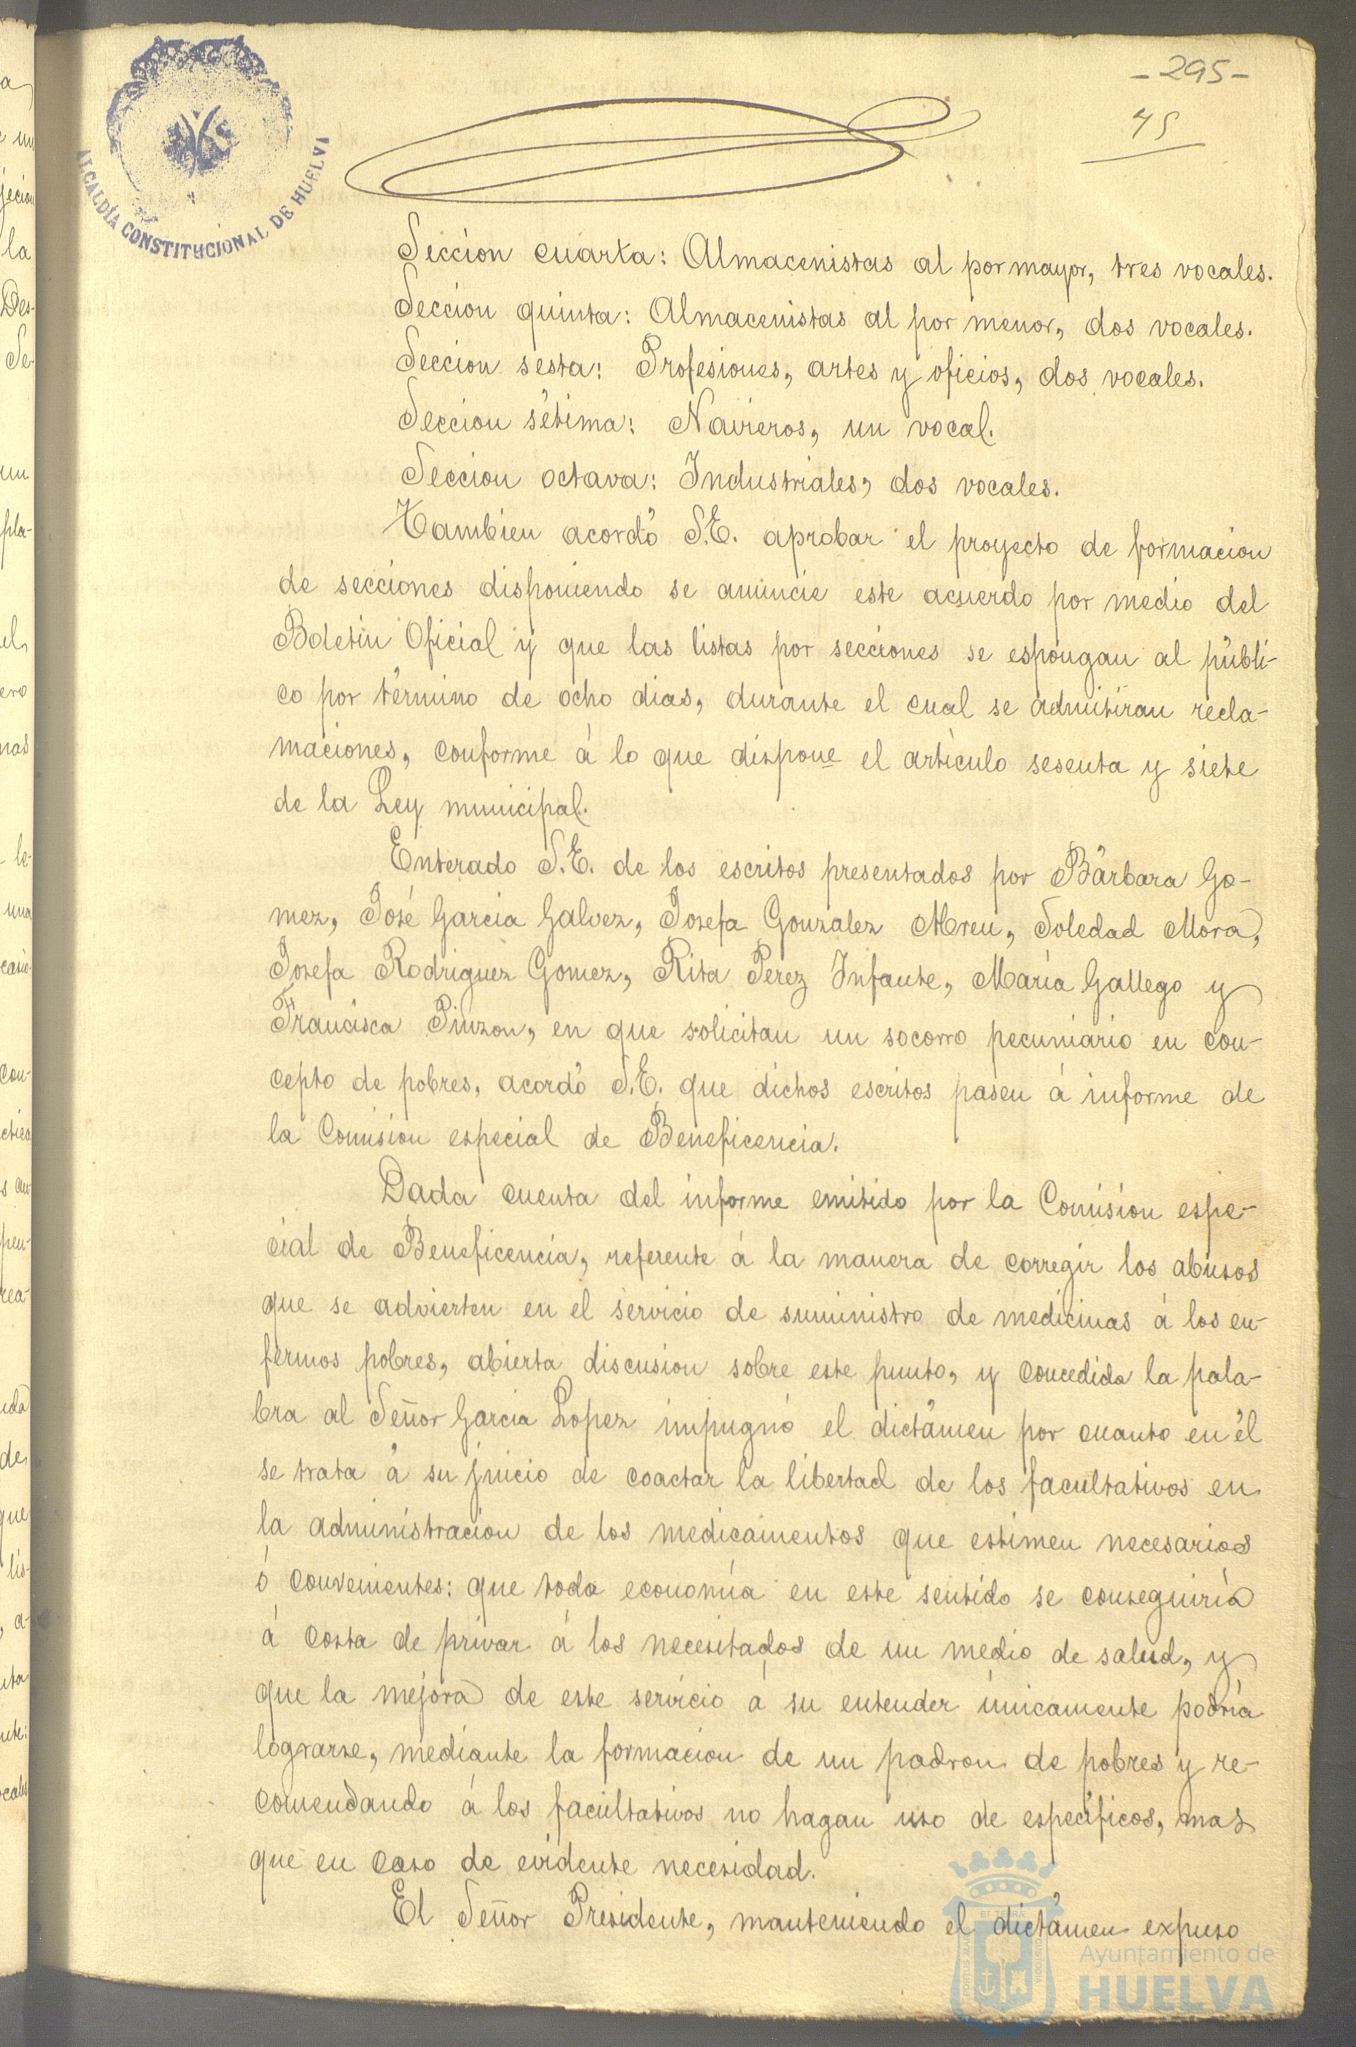 -295-
45
ALCALDÍA CONSTITUCIONAL DE HUELVA
Seccion cuarta: Almacenistas al por mayor, tres vocales.
Seccion quinta: Almacenistas al por menor, dos vocales.
Seccion sesta: Profesiones, artes y oficios, dos vocales.
Seccion sétima: Navieros, un vocal.
Seccion octava: Industriales, dos vocales.
Tambien acordó S.E. aprobar el proyecto de formacion
de secciones disponiendo se anuncie este acuerdo por medio del
Boletin Oficial y que las listas por secciones se espongan al públi-
co por término de ocho dias, durante el cual se admitiran recla-
maciones, conforme á lo que dispone el artículo sesenta y siete
de la Ley municipal.
Enterado S.E. de los escritos presentados por Bárbara Go-
mez, José Garcia Galvez, Josefa Gonzalez Abreu, Soledad Mora,
Josefa Rodriguez Gomez, Rita Perez Infante, María Gallego y
Francisca Pinzon, en que solicitan un socorro pecuniario en con-
cepto de pobres, acordó S.E. que dichos escritos pasen á informe de
la Comision especial de Beneficencia.
Dada cuenta del informe emitido por la Comision espe-
cial de Beneficencia, referente á la manera de corregir los abusos
que se advierten en el servicio de suministro de medicinas á los en-
fermos pobres, abierta discusion sobre este punto, y concedida la pala-
bra al Señor Garcia Lopez impugnó el dictámen por cuanto en él
se trata á su juicio de coactar la libertad de los facultativos en
la administracion de los medicamentos que estimen necesarios
ó convenientes: que toda economía en este sentido se conseguiria
á costa de privar á los necesitados de un medio de salud, y
que la mejora de este servicio á su entender únicamente podria
lograrse, mediante la formacion de un padron de pobres y re-
comendando á los facultativos no hagan uso de específicos, mas
que en caso de evidente necesidad.
El Señor Presidente, manteniendo el dictámen expuso
Ayuntamiento de
HUELVA